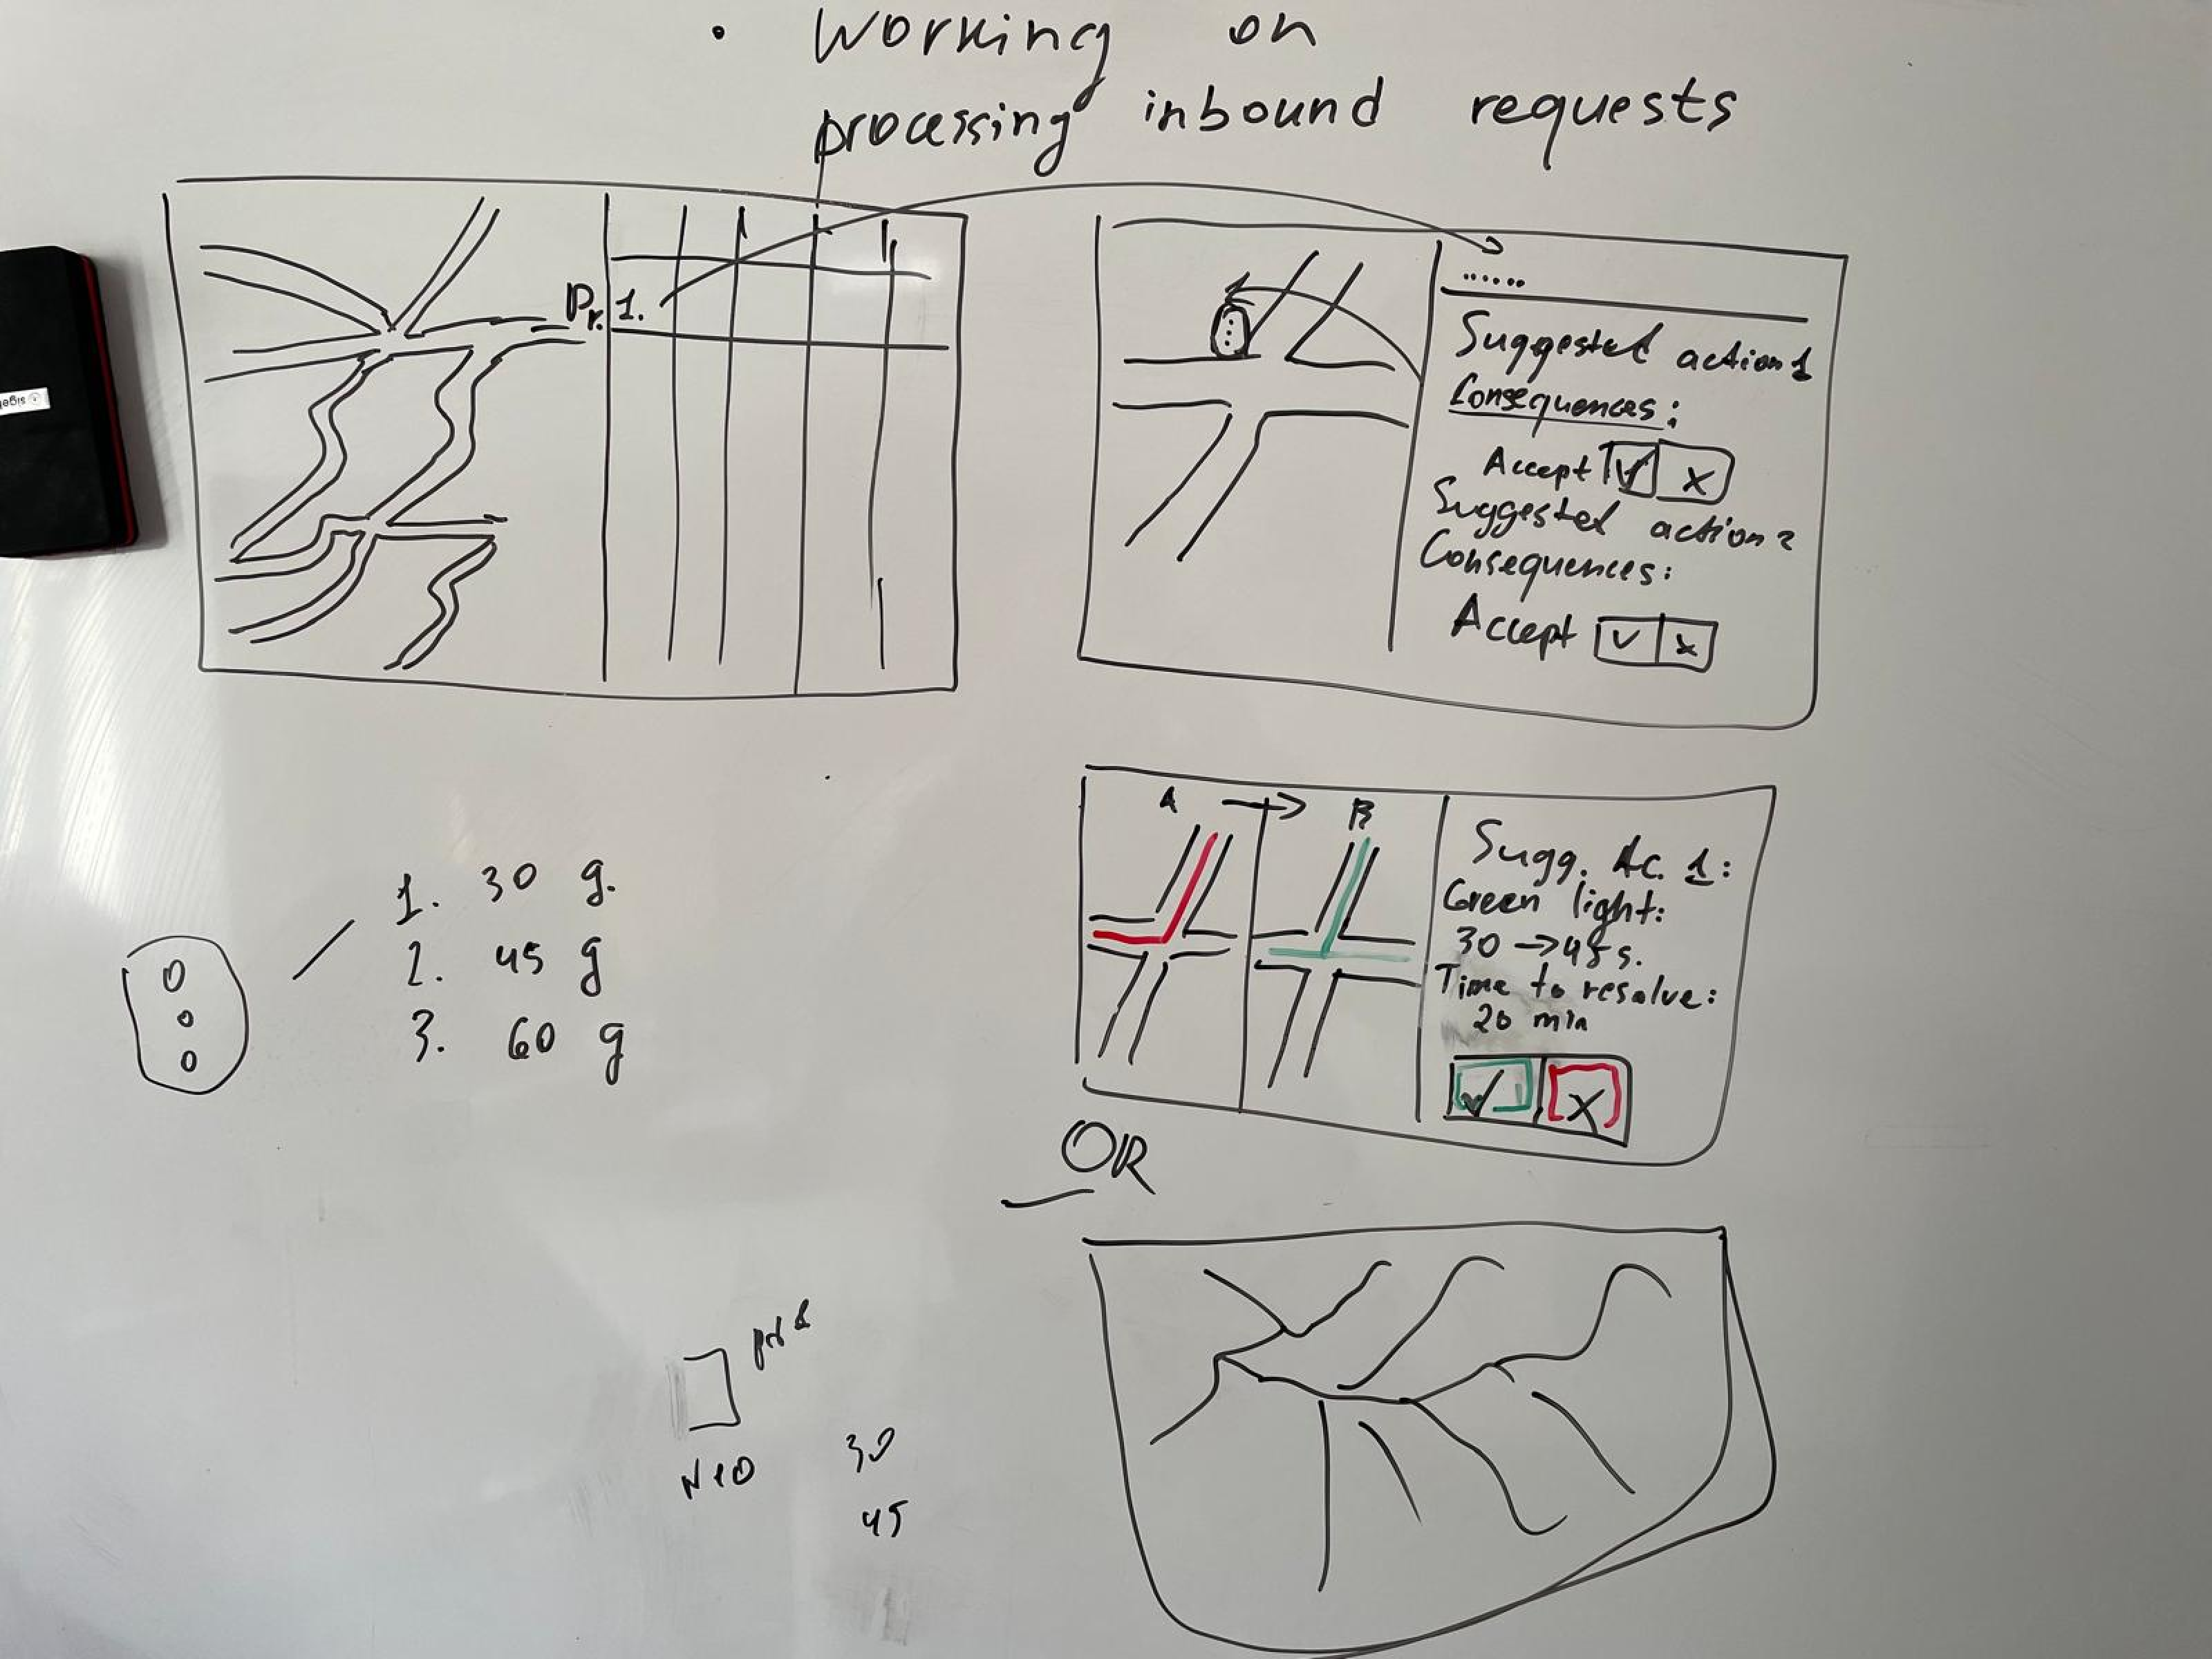 • Working on
processing inbound requests
Pr. 1.
......
Suggested action 1
Consequences:
Accept ✓ x
Suggested action 2
Consequences:
Accept ✓ x
A → B
Sugg. Ac. 1:
Green light:
30 → 45 s.
Time to resolve:
20 min
✓ X
1. 30 g.
2. 45 g
3. 60 g
OR
30
45